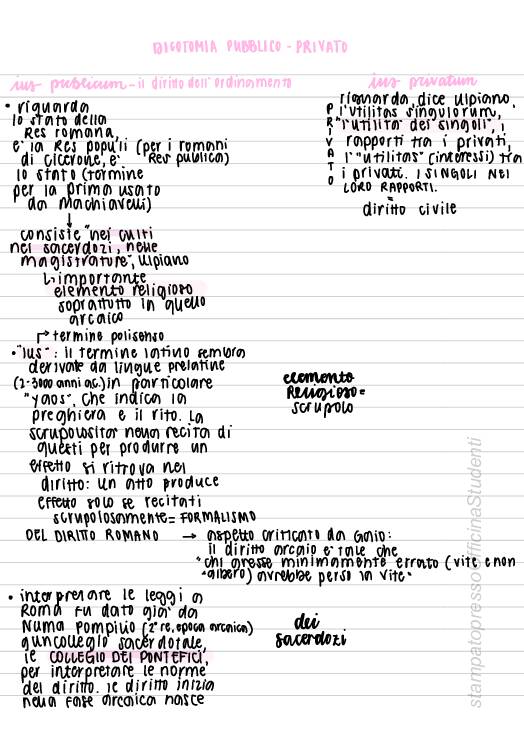 DICOTOMIA PUBBLICO - PRIVATO
ius publicum - il diritto dell'ordinamento
• riguarda
lo stato della
Res romana,
e la Res populi (per i romani
di cicerone, è Res publica)
lo stato (termine
per la prima usato
da Machiavelli)
↓
consiste "nei culti
nei sacerdozi, nelle
magistrature", Ulpiano
↳ importante
elemento religioso
soprattutto in quello
arcaico
↱ termine polisenso
• "ius": il termine latino sembra
derivate da lingue prelatine
(2-3000 anni a.C.) in particolare
"yaos", che indica la
preghiera e il rito. La
scrupolosita' nella recita di
questi per produrre un
effetto si ritrova nel
diritto: un atto produce
effetto solo se recitati
scrupolosamente = FORMALISMO
DEL DIRITTO ROMANO → aspetto criticato da Gaio:
il diritto arcaio e tale che
"chi avesse minimamente errato (vite e non
albero) avrebbe perso la vite"
• interpretare le leggi a
Roma fu dato gia' da
Numa Pompilio (2° re, epoca arcaica)
a un collegio sacerdotale,
il COLLEGIO DEI PONTEFICI,
per interpretare le norme
del diritto. il diritto inizia
nella fase arcaica nasce
ius privatum
PRIVATO
riguarda, dice Ulpiano,
l'utilitas singulorum,
"l'utilita' dei singoli", i
rapporti tra i privati,
l'"utilitas" (interessi) tra
i privati. I SINGOLI NEI
LORO RAPPORTI.
=
diritto civile
elemento
Religioso =
scrupolo
dei
sacerdozi
stampatopressol'officinaStudenti